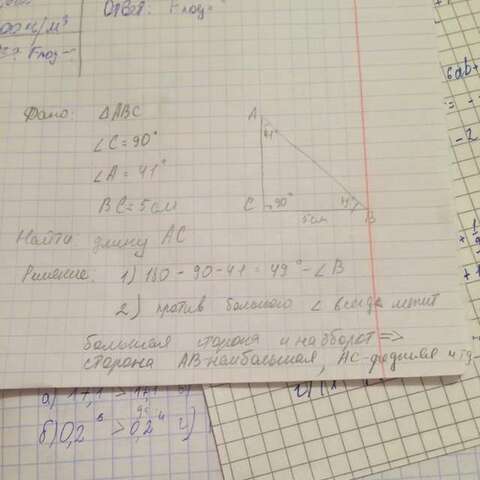 00 кг/м³
Ответ: Fпод=
Fпод-
Дано: ΔABC
∠C=90°
∠A=41°
BC=5см
A
41°
C
90°
B
5см
Найти длину AC
Решение: 1) 180-90-41=49°-∠B
2) против большого ∠ всегда лежит
большая сторона и наоборот =>
сторона AB наибольшая, AC-средняя и тд
6ab+
= -
-2
а) 17,1 > 17,1
б) 0,2 > 0,2